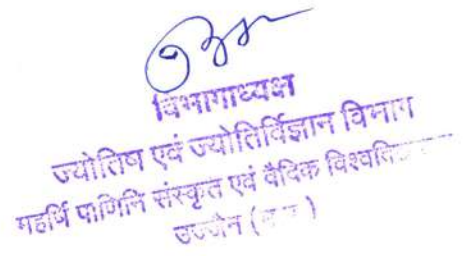 विभागाध्यक्ष
ज्योतिष एवं ज्योतिर्विज्ञान विभाग
महर्षि पाणिनि संस्कृत एवं वैदिक
उज्जैन